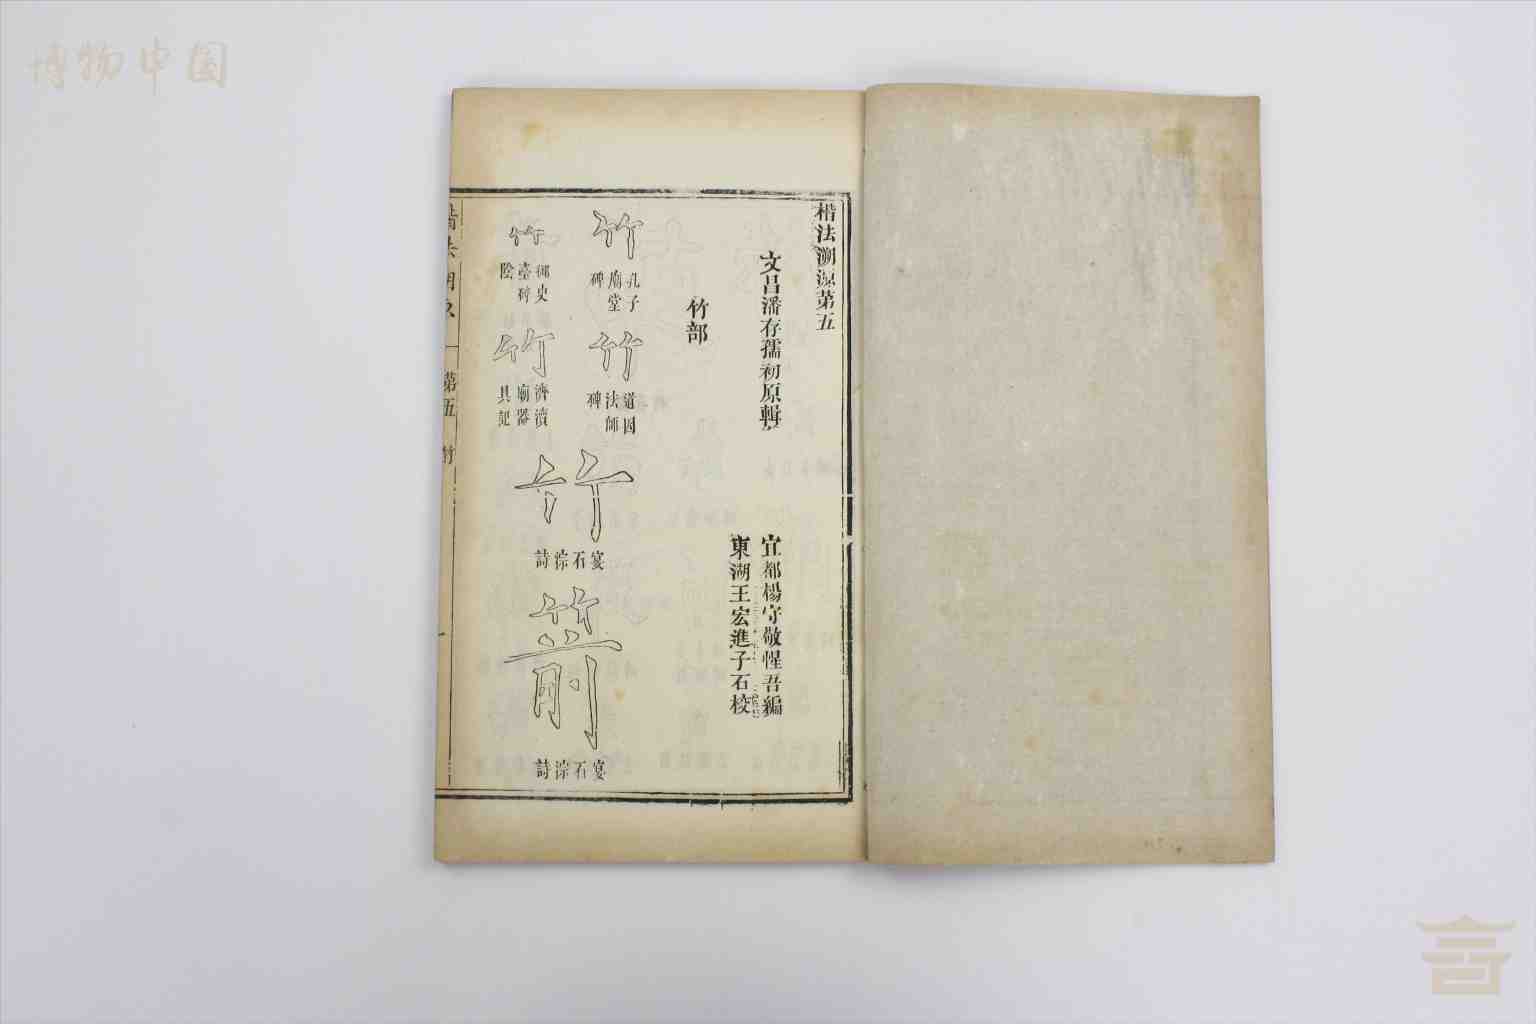 博物中国
楷法溯源第五
文昌潘存孺初原輯
宜都楊守敬惺吾編
東湖王宏進子石校
竹部
竹
孔子廟堂碑
竹
道因法師碑
竹
宴石淙詩
箭
宴石淙詩
竹
御史臺碑陰
竹
濟瀆廟器具記
楷法溯原
第五
竹
一